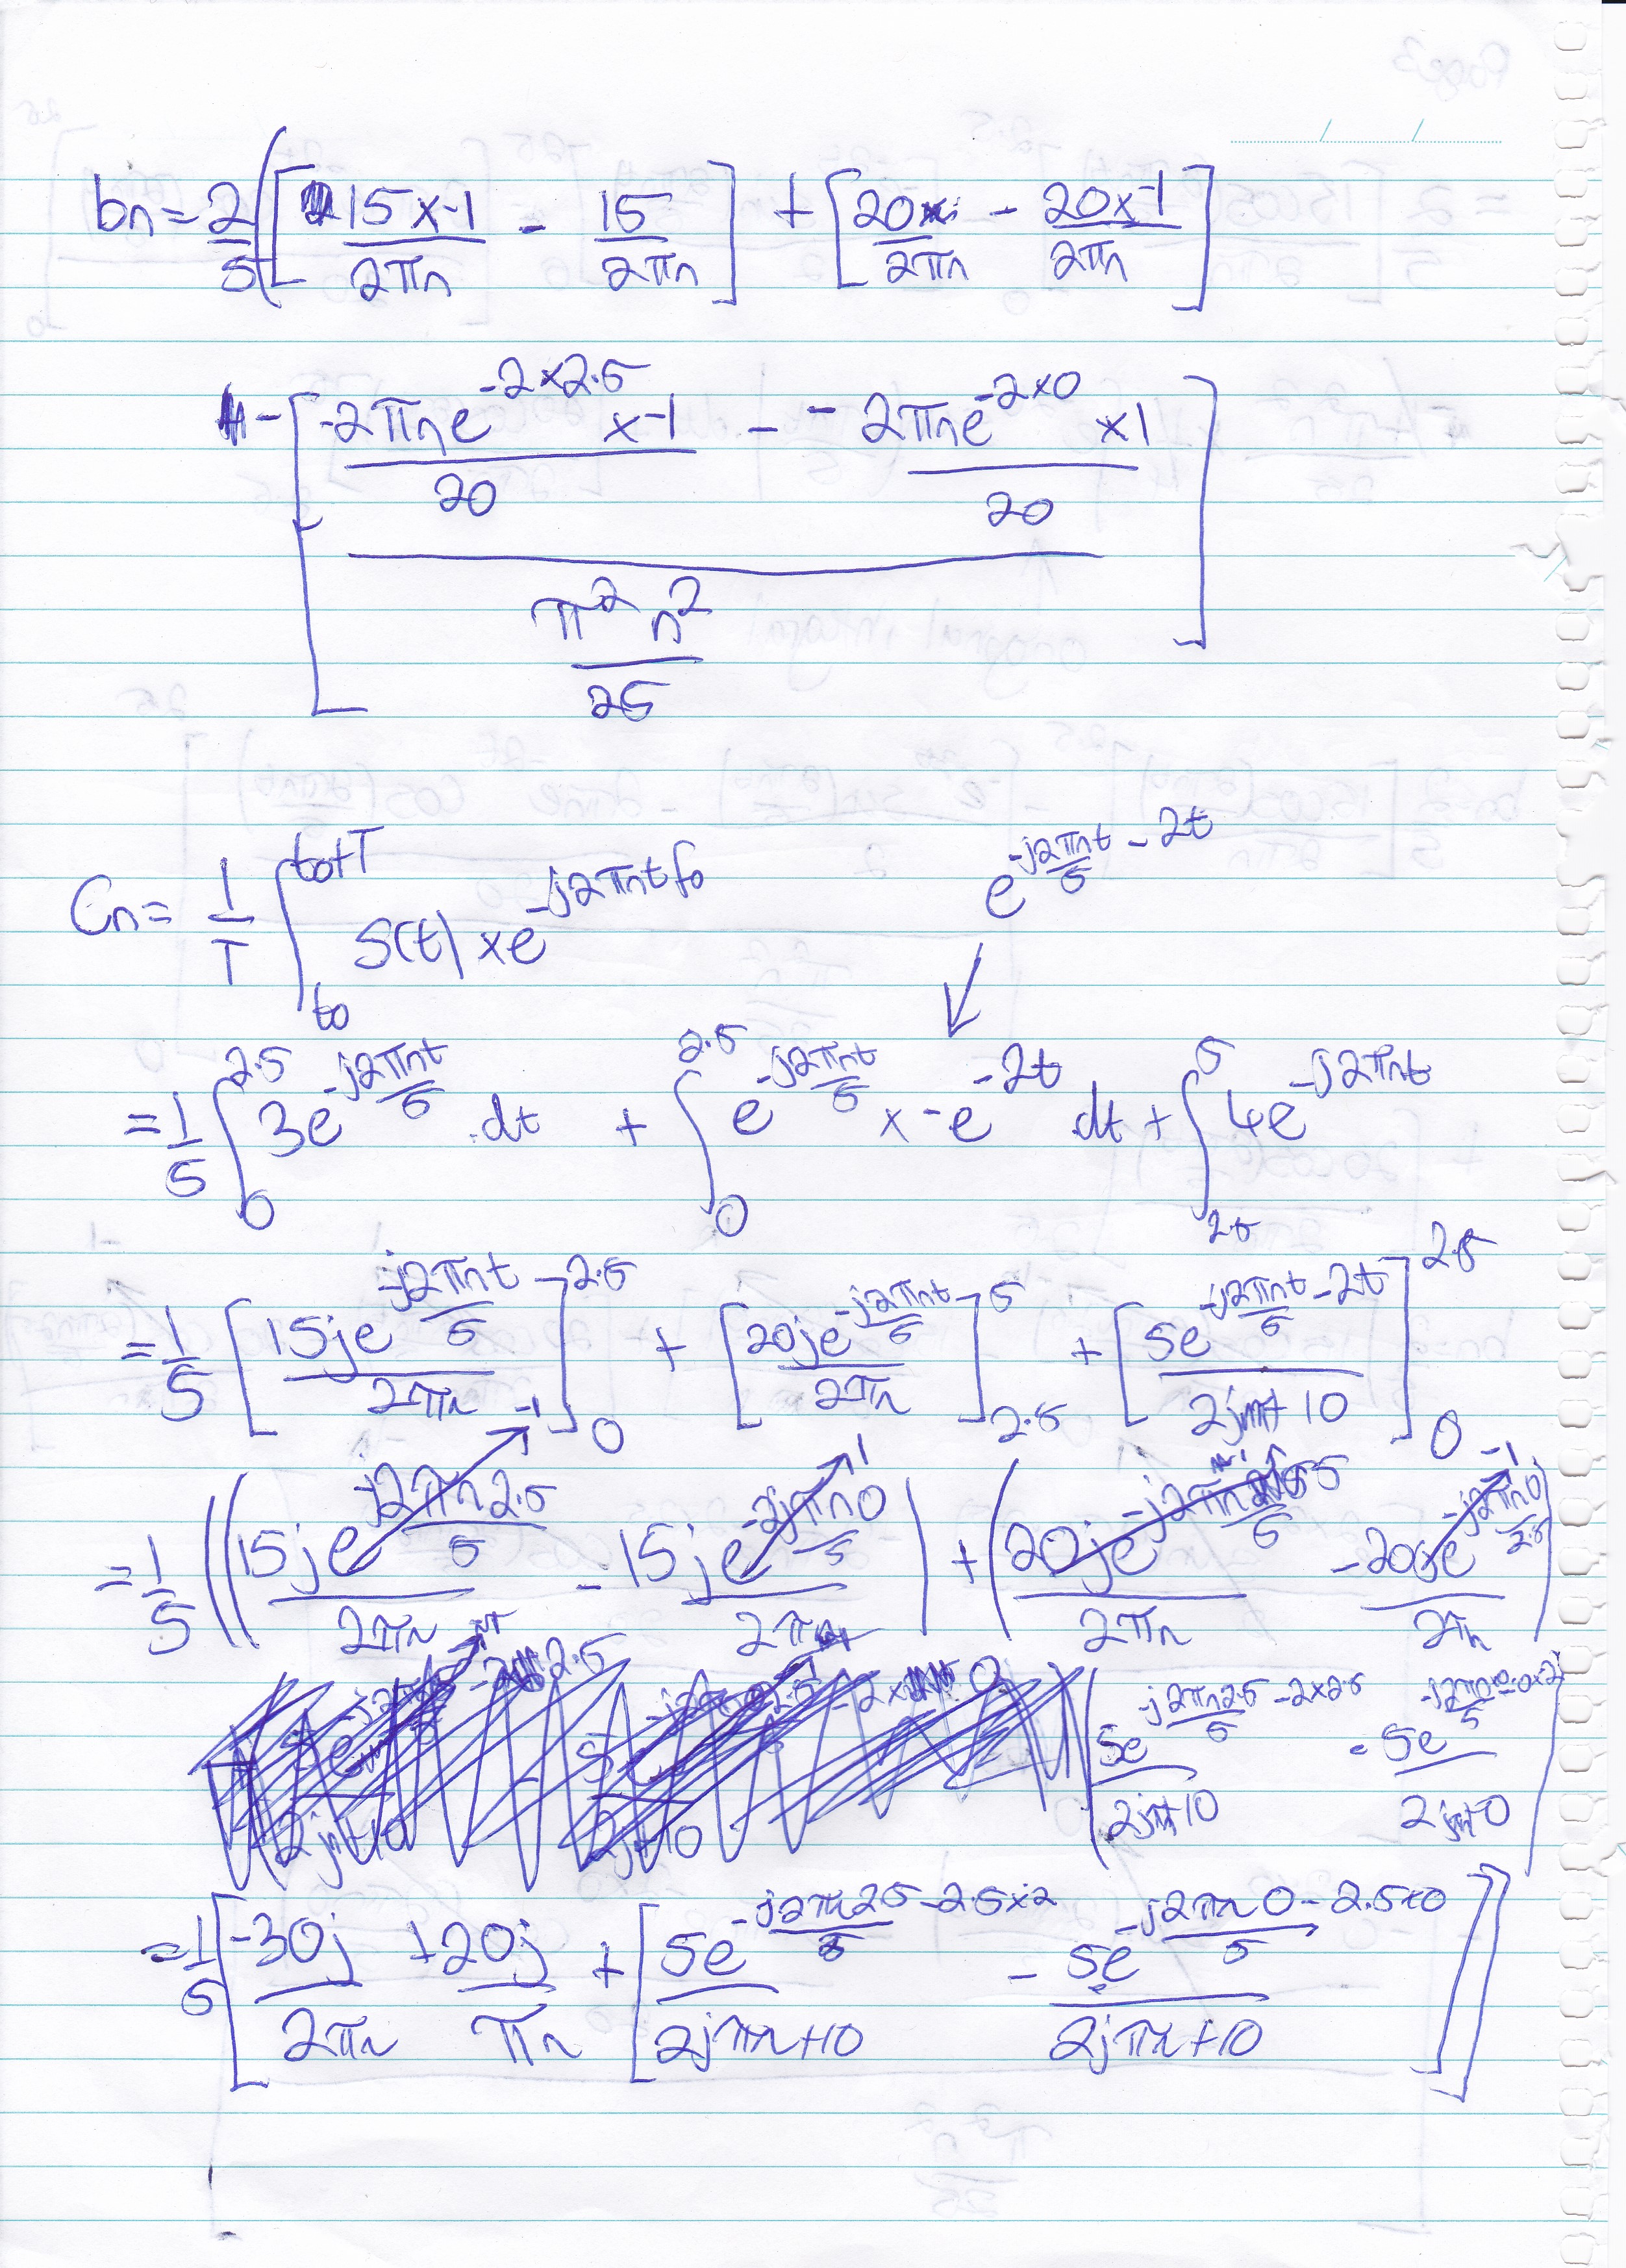 bn = 2/5 ( [ 15x-1/2πn - 15/2πn ] + [ 20x/2πn - 20x-1/2πn ]
- [ ( -2πne^(-2x2.5) x-1/20 - -2πne^(-2x0) x1/20 ) / ( π²n²/25 ) ]
e^(-j2πnt/5 - 2t)
Cn = 1/T ∫_to^(to+T) S(t) x e^(-j2πntfo)
= 1/5 ∫_0^2.5 3e^(-j2πnt/5) .dt + ∫_0^2.5 e^(-j2πnt/5) x -e^(-2t) dt + ∫_2.5^5 4e^(-j2πnt)
= 1/5 [ 15je^(-j2πnt/5) / 2πn ]_0^2.5 + [ 20je^(-j2πnt/5) / 2πn ]_2.5^5 + [ 5e^(-j2πnt/5 - 2t) / 2jπn+10 ]_0^2.5
-1 1 -1
= 1/5 (( 15je^(-j2πn2.5/5) / 2πn - 15je^(-2jπn0/5) / 2πn ) + ( 20je / 2πn - 20je / 2πn )
( 5e^(-j2πn2.5/5 - 2x2.5) / 2jπn+10 - 5e / 2jπn+10 )
= 1/5 [ -30j/2πn + 20j/πn + [ 5e^(-j2πn2.5/5 - 2.5x2) / 2jπn+10 - 5e^(-j2πn0/5 - 2.5x0) / 2jπn+10 ] ]